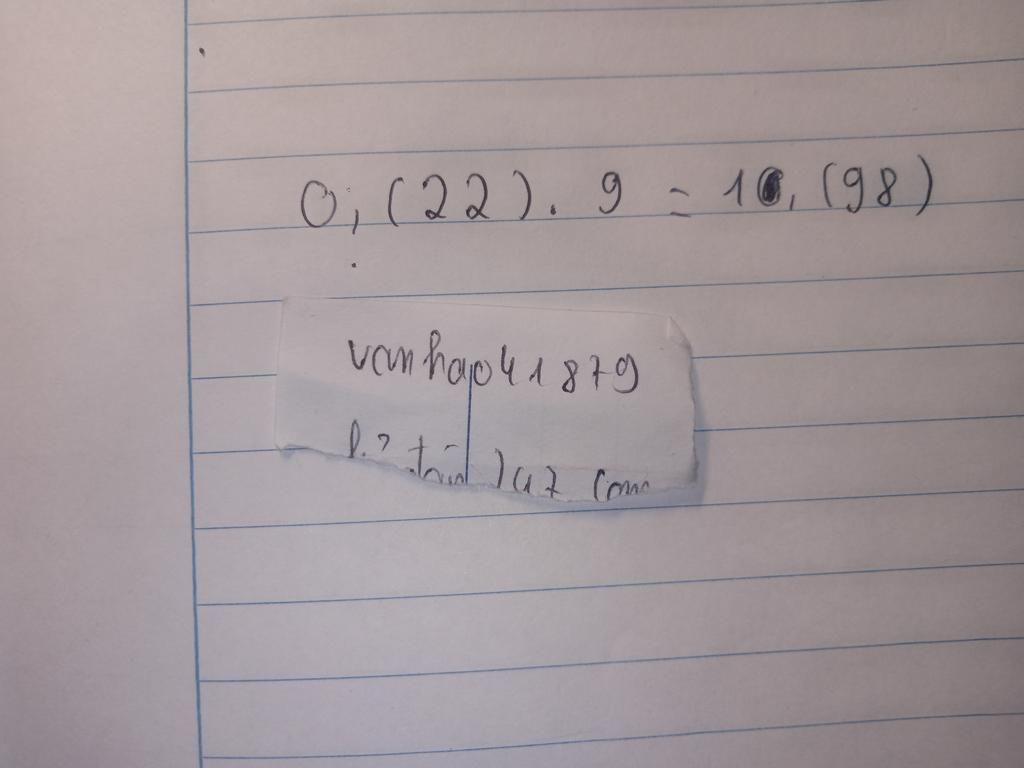 0,(22). 9 = 10,(98)
vanhao41879
247 com